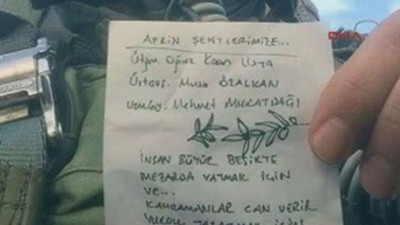 AFRİN ŞEHİTLERİMİZE...
Ütğm Oğuz Kaan Usta
Üstçvş. Musa ÖZALKAN
Uzm.Çvş. Mehmet MURATDAĞI
İNSAN BÜYÜR BEŞİKTE
MEZARDA YATMAK İÇİN
VE...
KAHRAMANLAR CAN VERİR
YURDU YAŞATMAK İÇİN